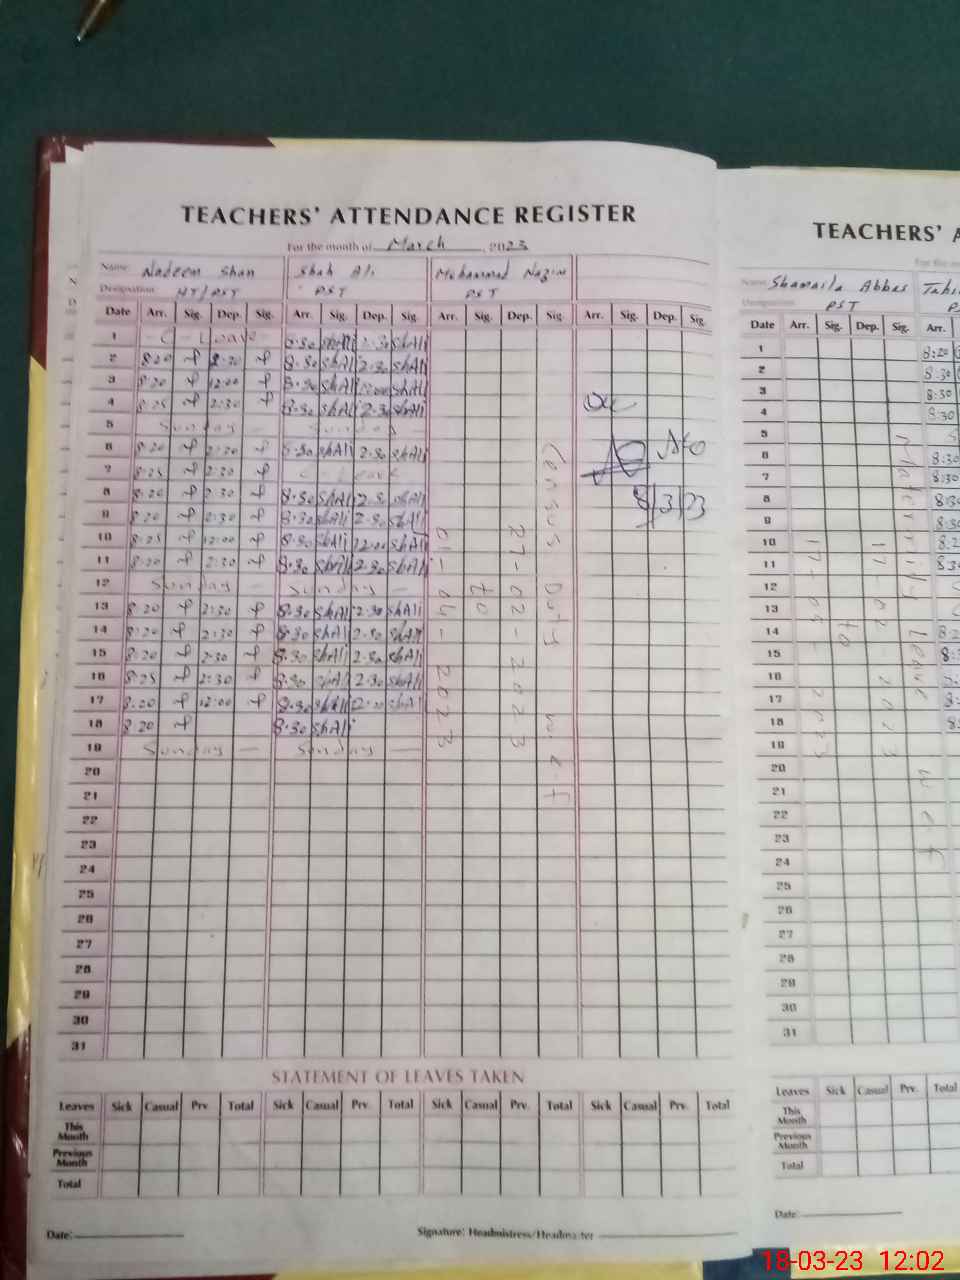 TEACHERS' ATTENDANCE REGISTER
For the month of March, 2023
Name Nadeem Shah Shah Ali Mohammad Nazim
Designation HT/PST PST PST
Date Arr. Sig. Dep. Sig. Arr. Sig. Dep. Sig. Arr. Sig. Dep. Sig. Arr. Sig. Dep. Sig.
1 - C - Leave - 8:30 ShAli 2:30 ShAli
2 8:20 2:30 8:30 ShAli 2:30 ShAli
3 8:20 12:00 8:30 ShAli 12:00 ShAli
4 8:25 2:30 8:30 ShAli 2:30 ShAli
5 Sunday - Sunday -
6 8:20 2:30 8:30 ShAli 2:30 ShAli
7 8:25 2:30 C - Leave
8 8:20 2:30 8:30 ShAli 2:30 ShAli
9 8:20 2:30 8:30 ShAli 2:30 ShAli
10 8:25 12:00 8:30 ShAli 12:00 ShAli
11 8:20 2:30 8:30 ShAli 2:30 ShAli
12 Sunday - Sunday -
13 8:20 2:30 8:30 ShAli 2:30 ShAli
14 8:20 2:30 8:30 ShAli 2:30 ShAli
15 8:20 2:30 8:30 ShAli 2:30 ShAli
16 8:25 2:30 8:30 ShAli 2:30 ShAli
17 8:20 12:00 8:30 ShAli ShAli
18 8:20 8:30 ShAli
19 Sunday - Sunday -
20
21
22
23
24
25
26
27
28
29
30
31
Census Duty w.e.f
27-02-2023
to
01-04-2023
8/3/23
STATEMENT OF LEAVES TAKEN
Leaves Sick Casual Prv. Total Sick Casual Prv. Total Sick Casual Prv. Total Sick Casual Prv. Total
This Month
Previous Month
Total
Date: Signature: Headmistress/Headmaster
TEACHERS' A
For the
Name Shamaila Abbas
Designation PST
Date Arr. Sig. Dep. Sig. Arr.
1 8:20
2 8:30
3 8:30
4 8:30
5
6 8:30
7 8:30
8
9
10
11
12
13
14
15
16
17
18
19
20
21
22
23
24
25
26
27
28
29
30
31
Maternity Leave w.e.f
17-02-2023
to
Leaves Sick Casual Prv. Total
This Month
Previous Month
Total
Date:
18-03-23 12:02